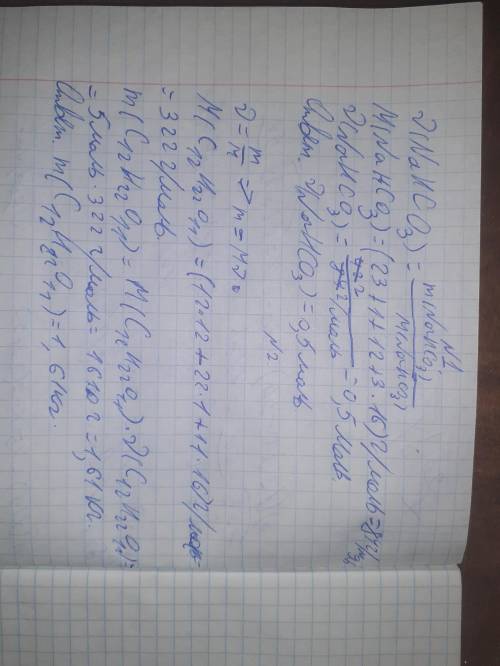 N1
ν(NaHCO₃) = m(NaHCO₃) / M(NaHCO₃)
M(NaHCO₃) = (23+1+12+3·16) г/моль = 84 г/моль
ν(NaHCO₃) = 42 г / 84 г/моль = 0,5 моль.
Ответ. ν(NaHCO₃) = 0,5 моль
N2
ν = m/M ⇒ m = M·ν
M(C₁₂H₂₂O₁₁) = (12·12+22·1+11·16) г/моль =
= 322 г/моль.
m(C₁₂H₂₂O₁₁) = M(C₁₂H₂₂O₁₁)·ν(C₁₂H₂₂O₁₁) =
= 5 моль · 322 г/моль = 1610 г = 1,61 кг.
Ответ. m(C₁₂H₂₂O₁₁) = 1,61 кг.